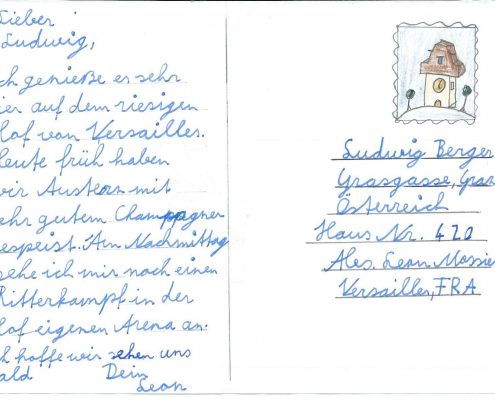 Lieber
Ludwig,
ch genieße es sehr
ier auf dem riesigen
of von Versailles.
eute früh haben
ir Austern mit
ehr gutem Champagner
espeist. Am Nachmittag
ehe ich mir noch einen
Ritterkampf in der
of eigenen Arena an.
ch hoffe wir sehen uns
ald Dein
Leon
Ludwig Berger
Grasgasse, Graz
Österreich
Haus Nr. 420
Ales. Leon Massie
Versailles, FRA